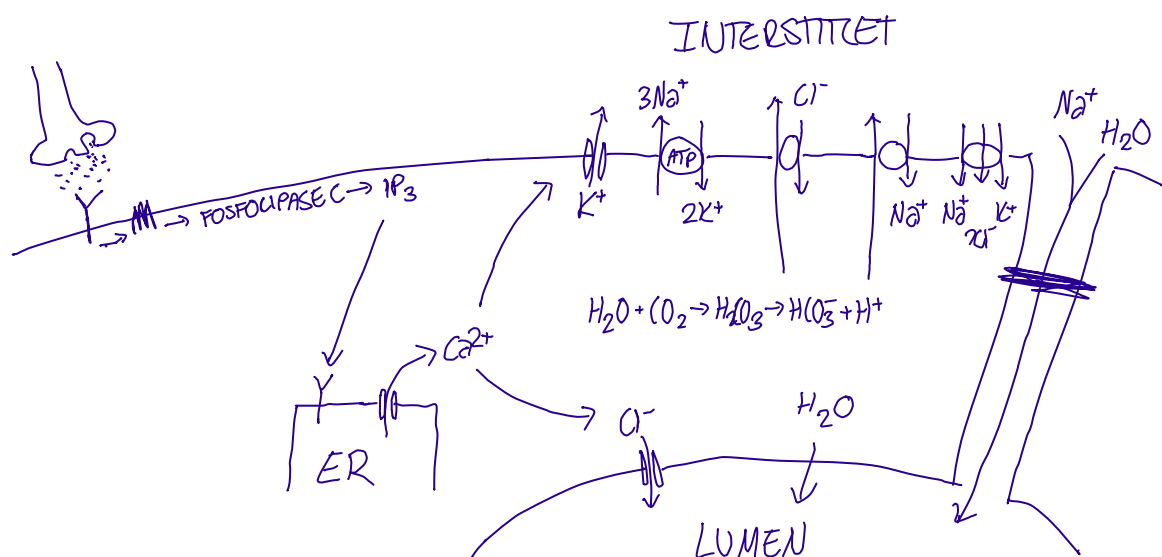 INTERSTITLET
3Na⁺
Cl⁻
Na⁺
H₂O
ATP
FOSFOLIPASE C → IP₃
K⁺
2K⁺
Na⁺
Na⁺
2Cl⁻
K⁺
H₂O + CO₂ → H₂CO₃ → HCO₃⁻ + H⁺
Ca²⁺
Cl⁻
H₂O
ER
LUMEN